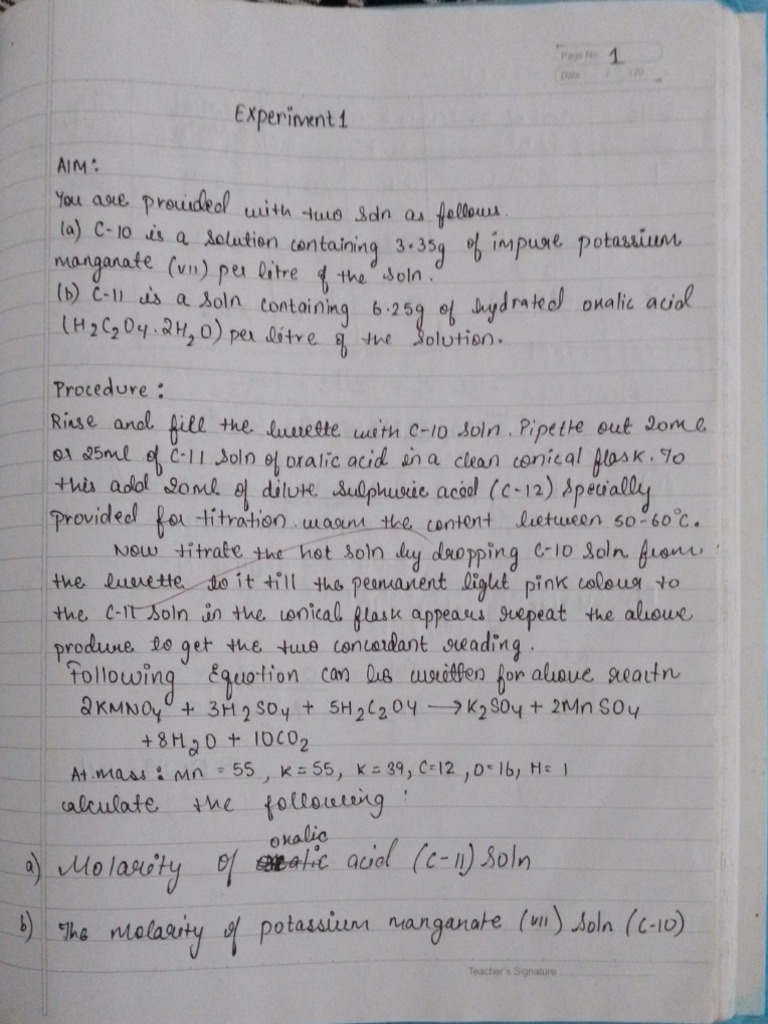 Page No 1
Date / /20
Experiment 1
AIM:
You are provided with two soln as follows.
(a) C-10 is a solution containing 3.35g of impure potassium
manganate (VII) per litre of the soln.
(b) C-11 is a soln containing 6.25g of hydrated oxalic acid
(H2C2O4.2H2O) per litre of the solution.
Procedure:
Rinse and fill the burette with C-10 soln. Pipette out 20ml
or 25ml of C-11 soln of oxalic acid in a clean conical flask. To
this add 20ml of dilute sulphuric acid (C-12) specially
provided for titration. warm the content between 50-60°C.
Now titrate the hot soln by dropping C-10 soln from
the burette to it till the permanent light pink colour to
the C-11 soln in the conical flask appears repeat the above
produre to get the two concordant reading.
Following Equation can be written for above reactn
2KMNO4 + 3H2SO4 + 5H2C2O4 → K2SO4 + 2MnSO4
+ 8H2O + 10CO2
At.mass: Mn = 55, K = 55, K = 39, C=12, O=16, H=1
calculate the following:
a) Molarity of oxalic acid (C-11) soln
b) The molarity of potassium manganate (VII) soln (C-10)
Teacher's Signature